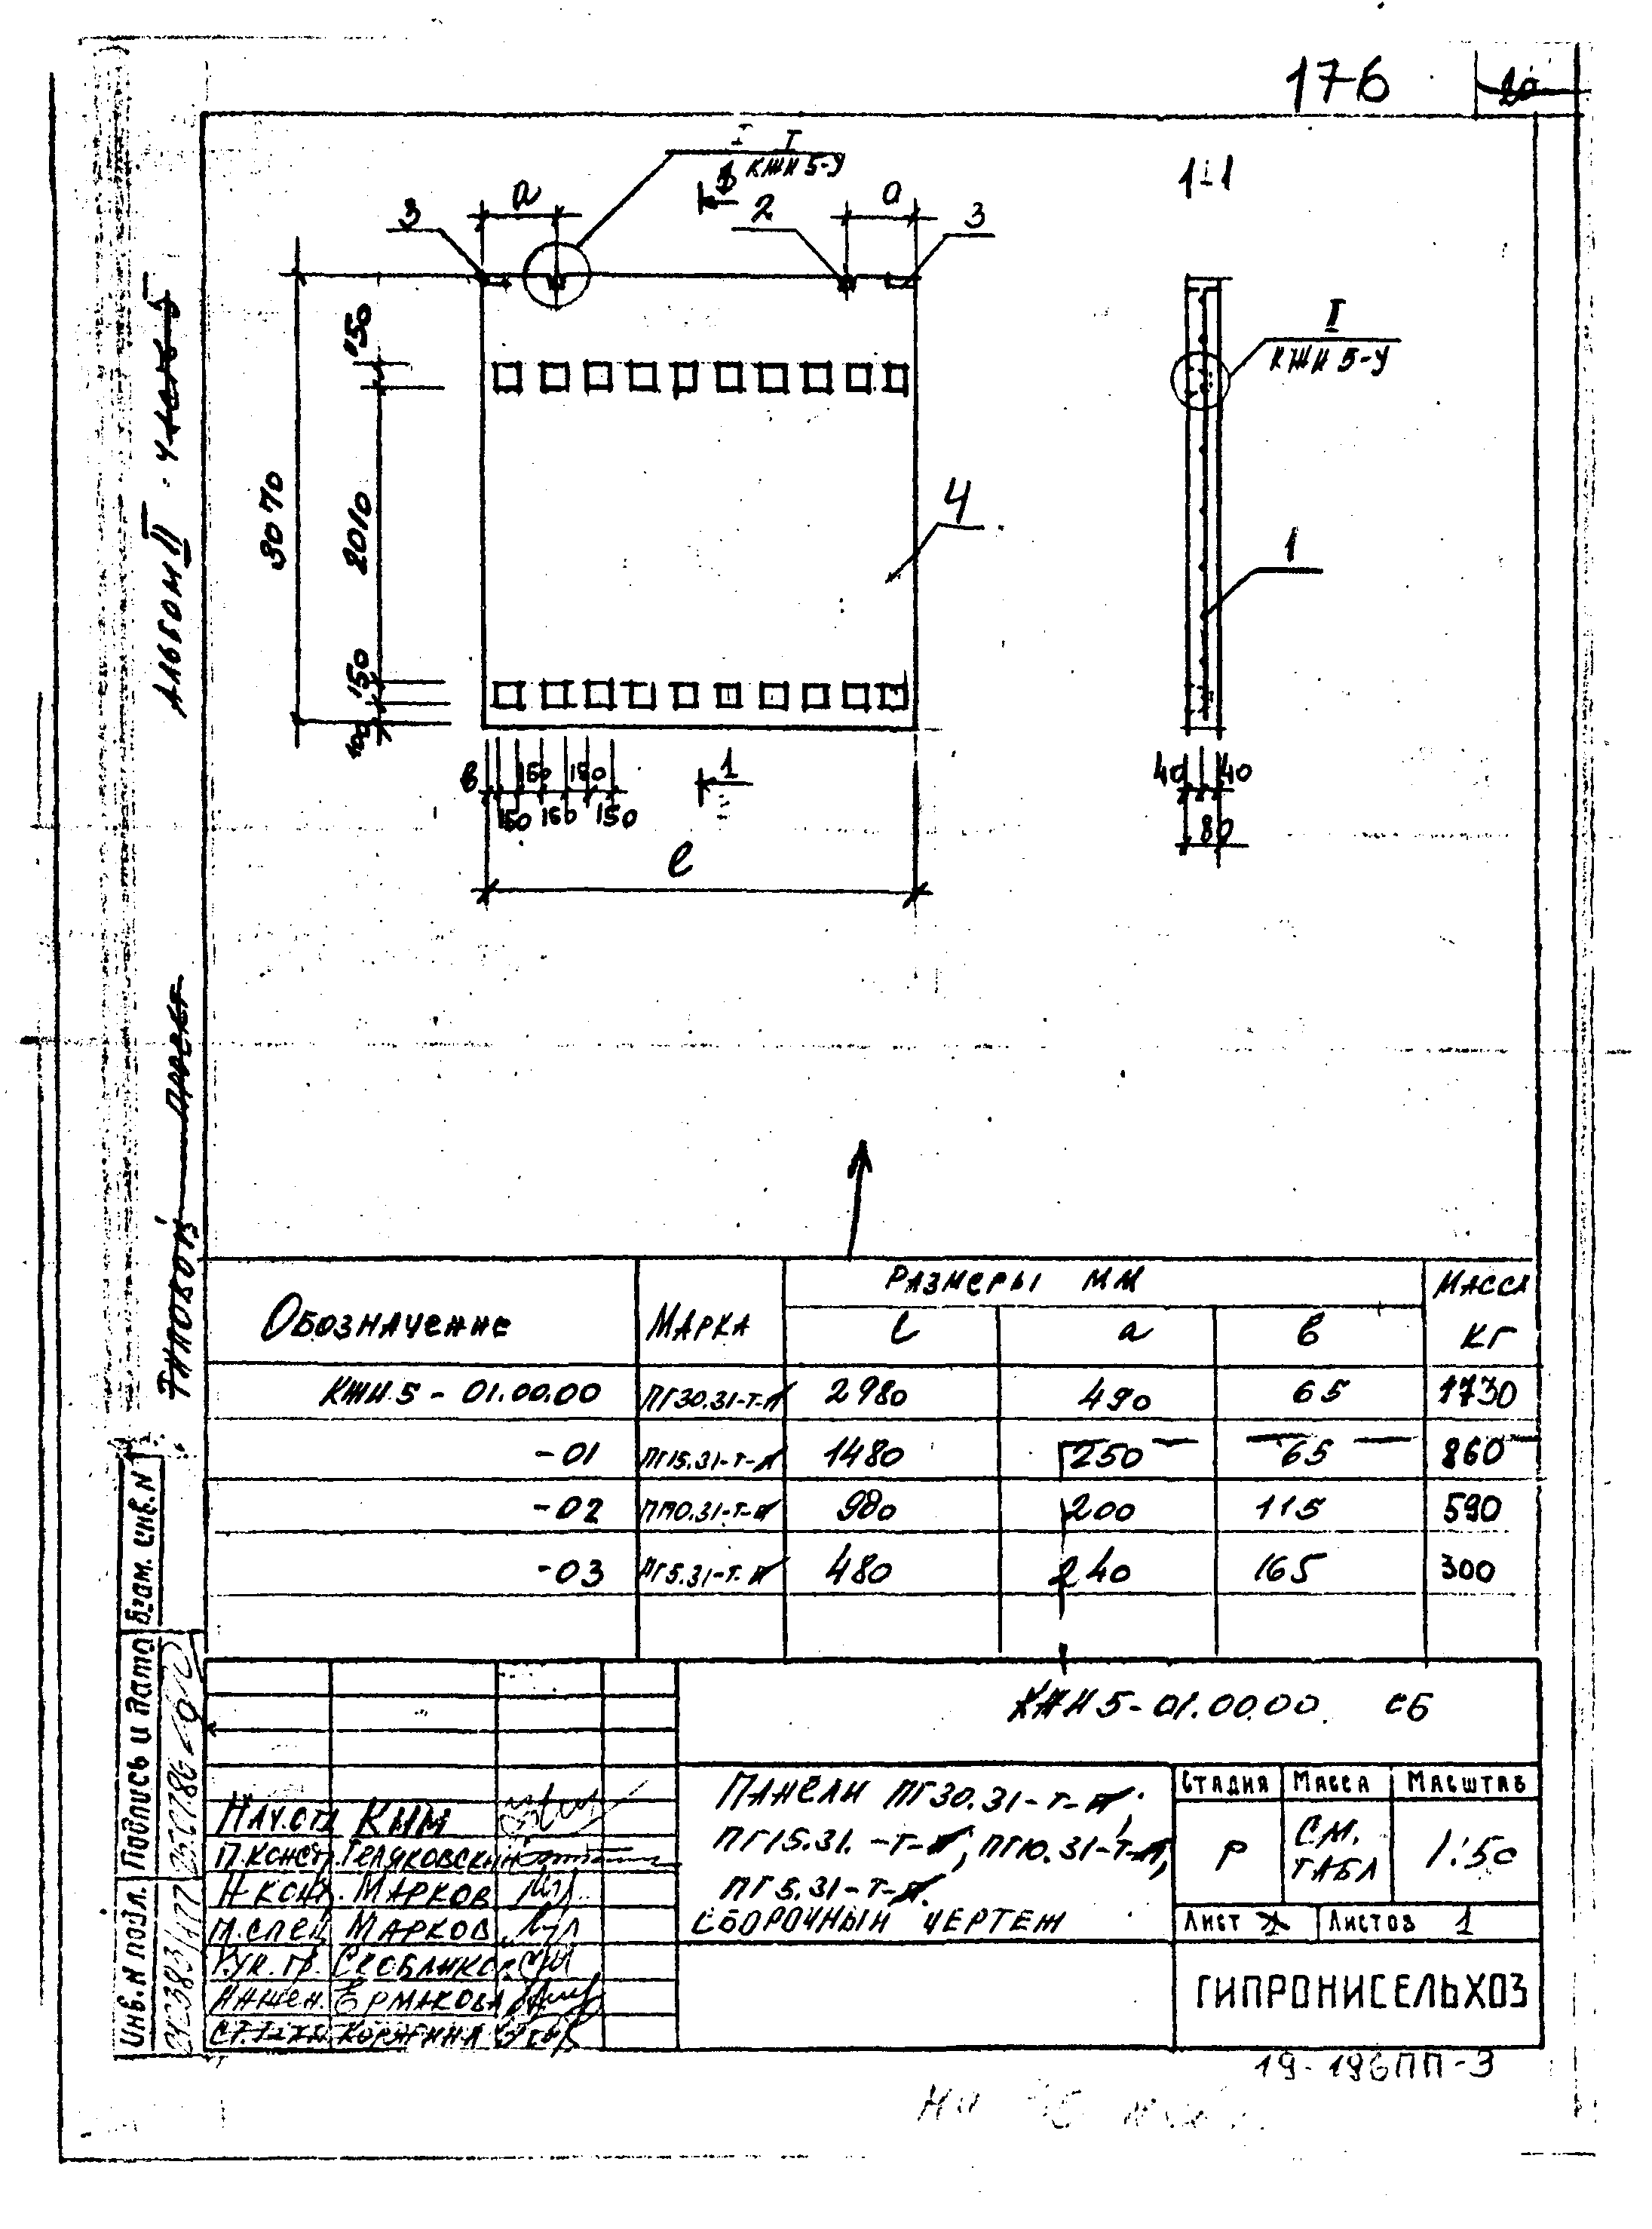 176
20
I I
КЖИ 5-У
1-1
3
а
1
2
а
3
450
3070
2010
4
150
100
II
КЖИ 5-У
1
в
150 150
150 150 150
1
ℓ
40 40
80
Альбом II часть 5
Типовой проект
Обозначение Марка Размеры мм Масса кг
ℓ а в
КЖИ 5 - 01.00.00 ПГ30.31-т-п 2980 490 65 1730
-01 ПГ15.31-т-п 1480 250 65 860
-02 ПГ10.31-т-п 980 200 115 590
-03 ПГ5.31-т-п 480 240 165 300
КЖИ 5-01.00.00 СБ
Панели ПГ30.31-т-п;
ПГ15.31.-т-п, ПГ10.31-т-п,
ПГ5.31-т-п.
Сборочный чертеж
Стадия Масса Масштаб
Р см. табл 1:50
Лист Листов 1
ГИПРОНИСЕЛЬХОЗ
Нач.отд Ким
Гл.конст. Теляковский
Н.конт. Марков
Гл.спец Марков
Рук. гр.
Инжен. Ермакова
Ст.техн. Корягина
Инв.N подл. Подпись и дата Взам. инв.N
19-196ПП-3